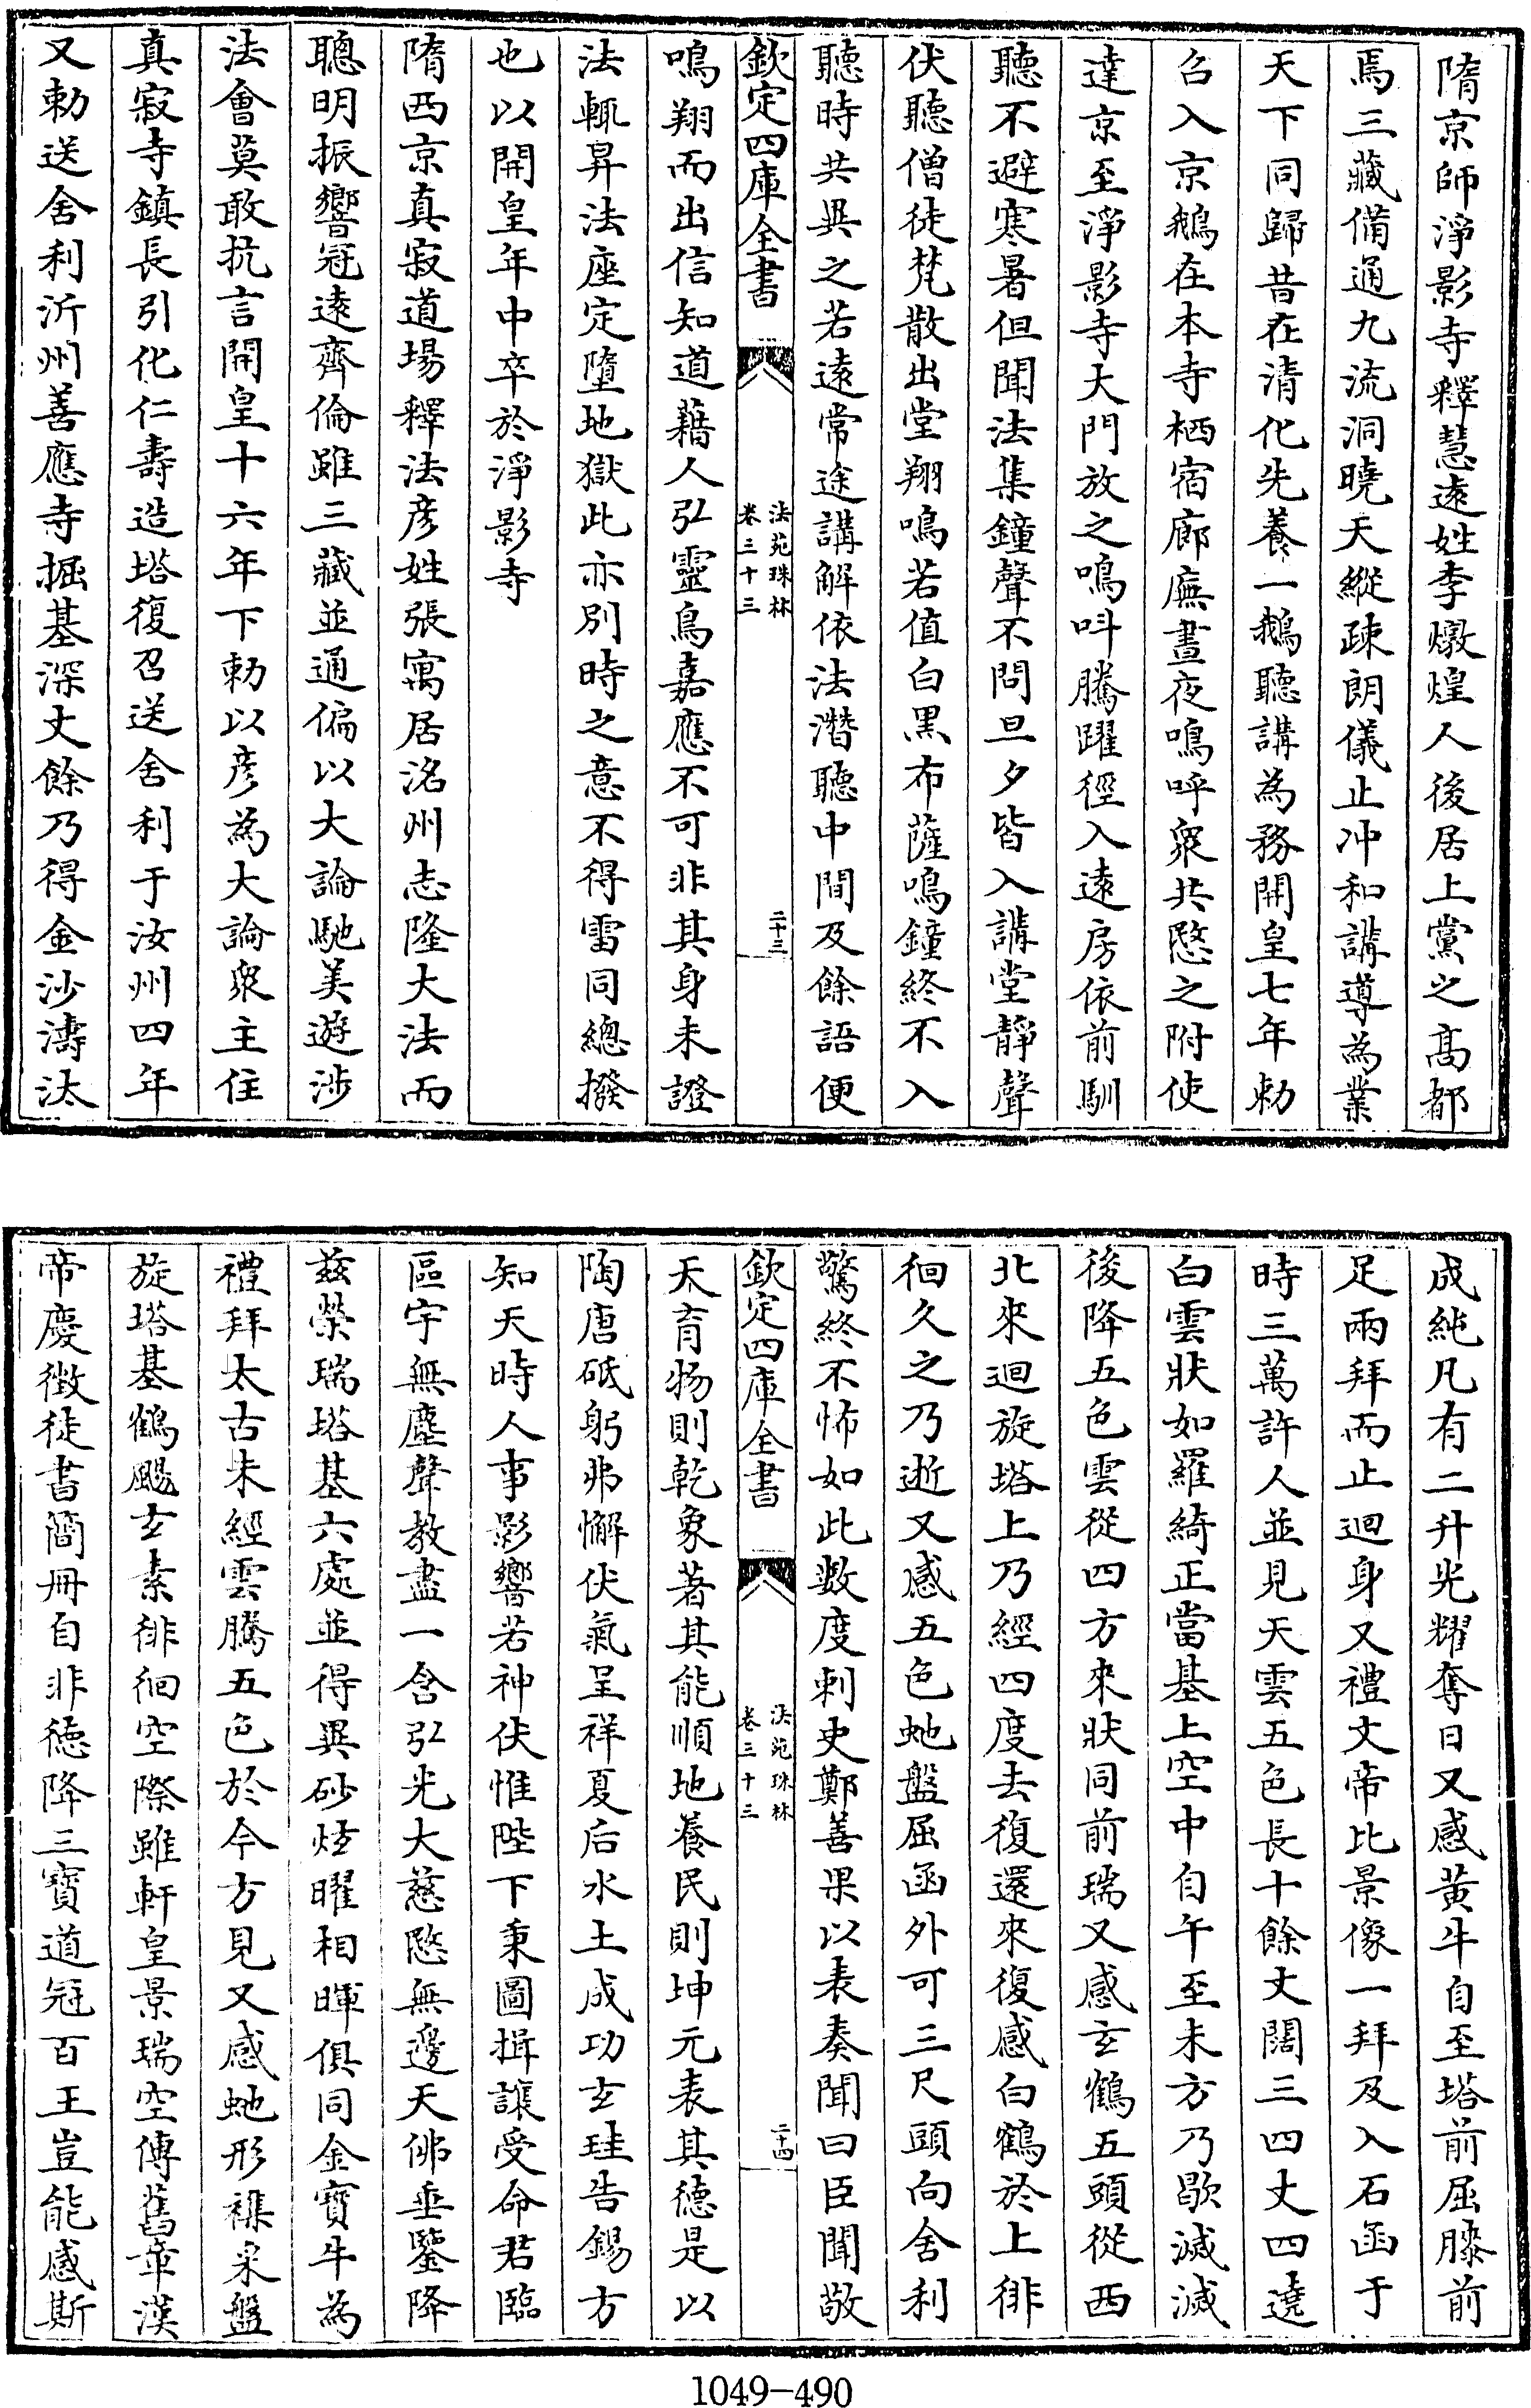 隋京師淨影寺釋慧遠姓李燉煌人後居上黨之高都
焉三藏備通九流洞曉天縱疎朗儀止冲和講導為業
天下同歸昔在清化先養一鵝聽講為務開皇七年勅
召入京鵝在本寺栖宿廊廡晝夜鳴呼衆共愍之附使
達京至淨影寺大門放之鳴叫騰躍徑入遠房依前馴
聽不避寒暑但聞法集鐘聲不問旦夕皆入講堂靜聲
伏聽僧徒梵散出堂翔鳴若值白黑布薩鳴鐘終不入
聽時共異之若遠常途講解依法潛聽中間及餘語便
欽定四庫全書
法苑珠林
卷三十三
二十三
鳴翔而出信知道藉人弘靈鳥嘉應不可非其身未證
法輒昇法座定墮地獄此亦別時之意不得雷同總撥
也以開皇年中卒於淨影寺
隋西京真寂道場釋法彦姓張寓居洺州志隆大法而
聰明振響冠遠齊倫雖三藏並通偏以大論馳美遊涉
法會莫敢抗言開皇十六年下勅以彦為大論衆主住
真寂寺鎮長引化仁壽造塔復召送舍利于汝州四年
又勅送舍利沂州善應寺掘基深丈餘乃得金沙濤汰
成純凡有二升光耀奪日又感黃牛自至塔前屈膝前
足兩拜而止迴身又禮文帝比景像一拜及入石函于
時三萬許人並見天雲五色長十餘丈闊三四丈四遶
白雲狀如羅綺正當基上空中自午至未方乃歇滅滅
後降五色雲從四方來狀同前瑞又感玄鶴五頭從西
北來迴旋塔上乃經四度去復還來復感白鶴於上徘
徊久之乃逝又感五色虵盤屈函外可三尺頭向舍利
驚終不怖如此數度刺史鄭善果以表奏聞曰臣聞敬
欽定四庫全書
法苑珠林
卷三十三
二十四
天育物則乾象著其能順地養民則坤元表其德是以
陶唐砥躬弗懈伏氣呈祥夏后水土成功玄珪告錫方
知天時人事影響若神伏惟陛下秉圖揖讓受命君臨
區宇無塵聲教盡一含弘光大慈愍無邊天佛垂鑒降
兹榮瑞塔基六處並得異砂炫曜相暉俱同金寶牛為
禮拜太古未經雲騰五色於今方見又感虵形襍采盤
旋塔基鶴颺玄素徘徊空際雖軒皇景瑞空傳舊章漢
帝慶徵徒書簡冊自非德降三寶道冠百王豈能感斯
1049-490